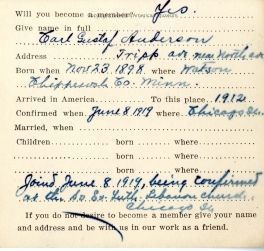 Will you become a member? Yes.
Give name in full
Carl Gustaf Anderson
Address Tripp ave near North ave
Born when Nov 23, 1898 where Watson
Chippewa Co. Minn.
Arrived in America To this place 1912
Confirmed when June 8 1919 where Chicago Ill.
Married, when
Children born where
born where
born where
Joined June 8, 1919, being confirmed
at the Sw. Ev. Luth. church,
Chicago Ill.
If you do not desire to become a member give your name
and address and be with us in our work as a friend.